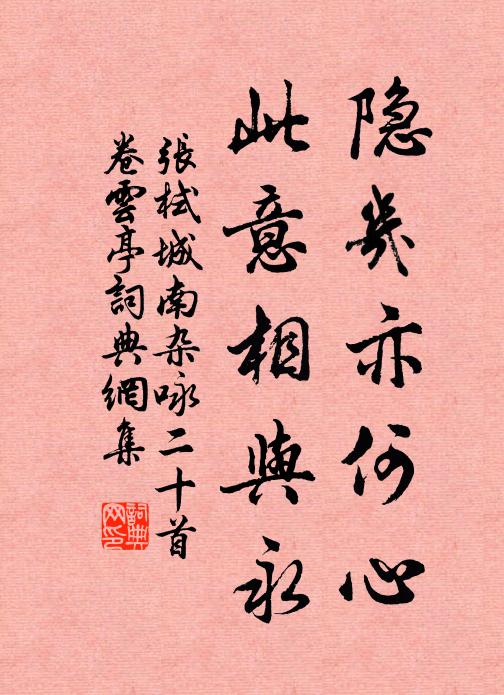 隐几亦何心
此意相與永
張栻城南杂咏二十首
卷雲亭詞典網集
詞典网印